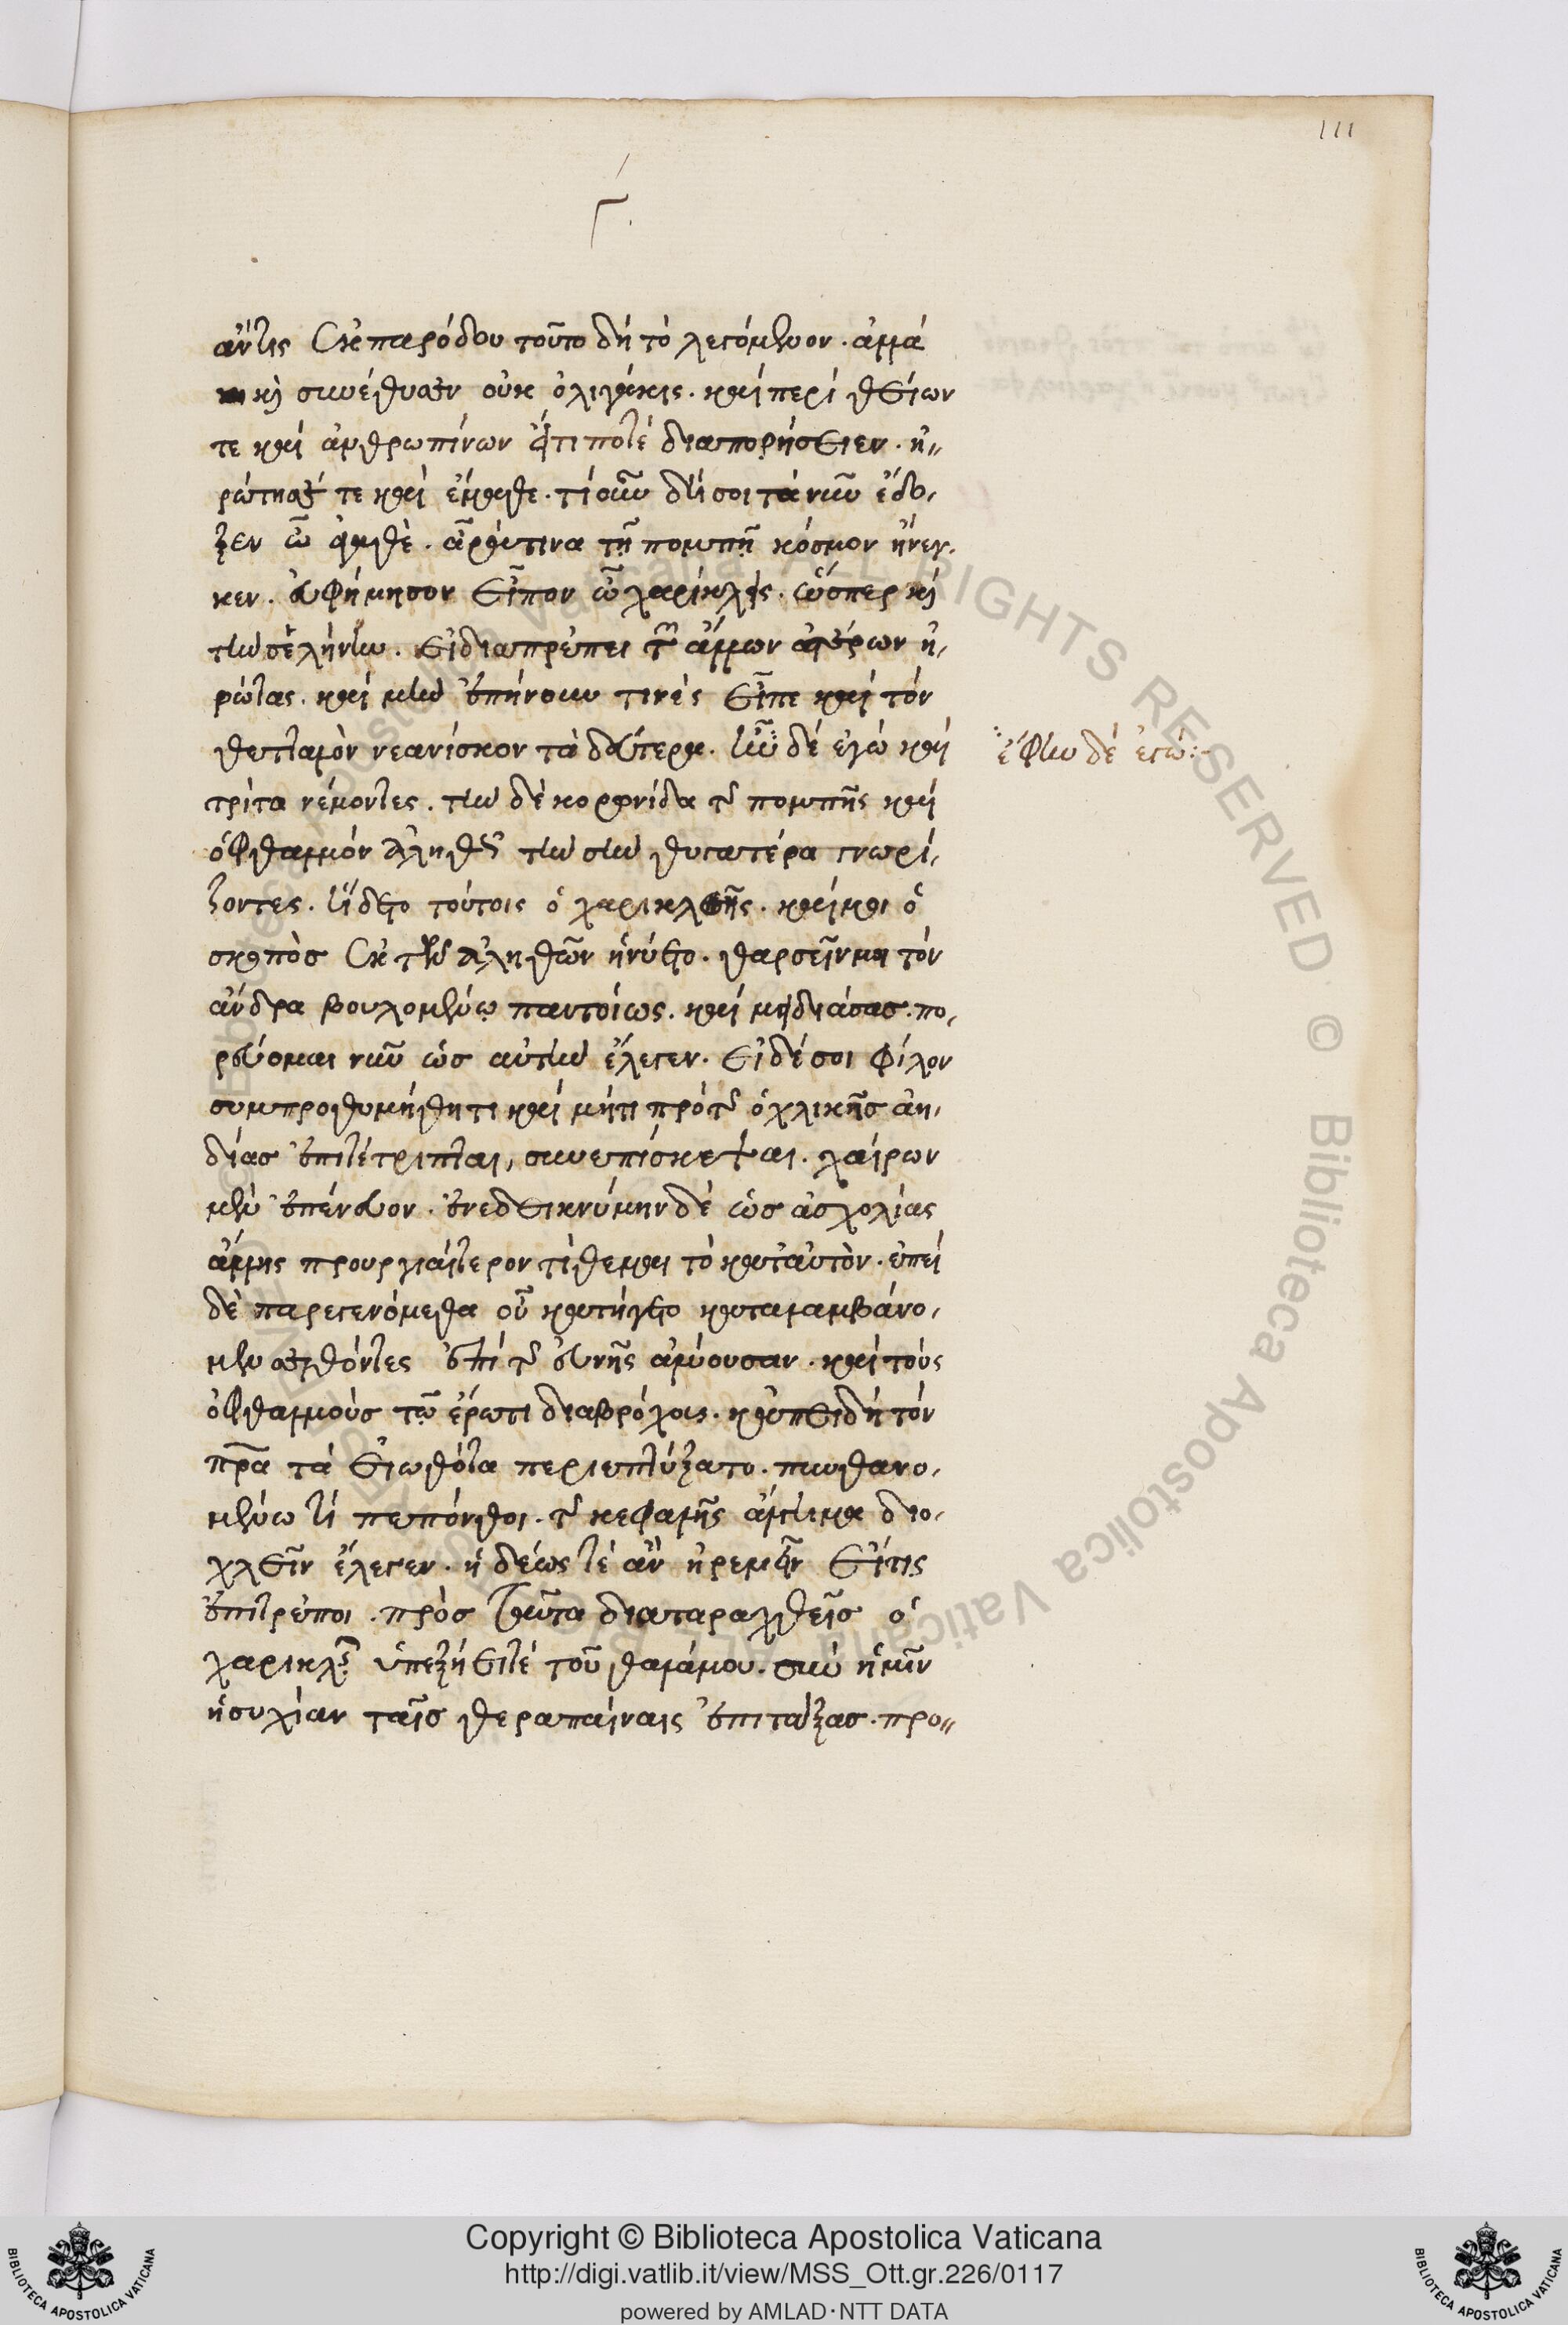 111
Γ.
ἄν τις ἐκ παρόδου τοῦτο δὴ τὸ λεγόμενον. ἀλλὰ
καὶ συνέθυσεν οὐκ ὀλιγάκις. καὶ περὶ θείων
τε καὶ ἀνθρωπίνων εἴ τι ποτὲ διαπορήσειεν. ἠ-
ρώτησέ τε καὶ ἔμαθε. τί οὖν δή σοι τὰ νῦν ἔδο-
ξεν ὦ ἀγαθὲ. ἆρά τινα τῇ πομπῇ κόσμον ἤνεγ-
κεν. εὐφήμησον εἶπον ὦ χαρίκλεις. ὥσπερ καὶ
τὴν σελήνην. εἰ διαπρέπει τῶν ἄλλων ἀστέρων ἠ-
ρώτας. καὶ μὴν ἐπῄνουν τινὲς εἶπε καὶ τὸν
θετταλὸν νεανίσκον τὰ δεύτερα. ἦν δὲ ἐγὼ καὶ
ἔφην δὲ ἐγώ:-
τρίτα νέμοντες. τὴν δὲ κορωνίδα τῆς πομπῆς καὶ
ὀφθαλμὸν ἀληθῶς τὴν σὴν θυγατέρα γνωρί-
ζοντες. ἥδετο τούτοις ὁ χαρικλῆς. καί μοι ὁ
σκοπὸς ἐκ τῶν ἀληθῶν ἠνύετο. θαρσεῖν μοι τὸν
ἄνδρα βουλομένῳ παντοίως. καὶ μειδιάσας. πο-
ρεύσομαι νῦν ὡς αὐτὴν ἔλεγεν. εἰ δέ σοι φίλον
συμπροθυμήθητι καὶ μή τι πρὸ τῆς ὀχλικῆς ἀη-
δίας ἐπιτέτριπται, συνεπίσκεψαι. χαίρων
μὲν ἐπένευον. ἐνεδεικνύμην δὲ ὡς ἀσχολίας
ἄλλης προυργιαίτερον τίθεμαι τὸ κατ' αὐτὸν. ἐπεὶ
δὲ παρεγενόμεθα οὗ κατήγετο καταλαμβάνο-
μεν εἰσελθόντες ἐπὶ τῆς εὐνῆς ἀλύουσαν. καὶ τοὺς
ὀφθαλμοὺς τῷ ἔρωτι διαβρόχοις. κἀπειδὴ τὸν
πρα τὰ εἰωθότα περιεπτύξατο. πυνθανο-
μένω τί πεπόνθοι. τῆς κεφαλῆς ἄλγημα διο-
χλεῖν ἔλεγεν. ἡδέως τε ἂν ἠρεμεῖν εἴ τις
ἐπιτρέποι. πρὸς ταῦτα διαταραχθεὶς ὁ
χαρικλῆς ὑπεξῄει τε τοῦ θαλάμου. σὺν ἡμῖν
ἡσυχίαν ταῖς θεραπαίναις ἐπιτάξας. προ-
Copyright © Biblioteca Apostolica Vaticana
http://digi.vatlib.it/view/MSS_Ott.gr.226/0117
powered by AMLAD·NTT DATA